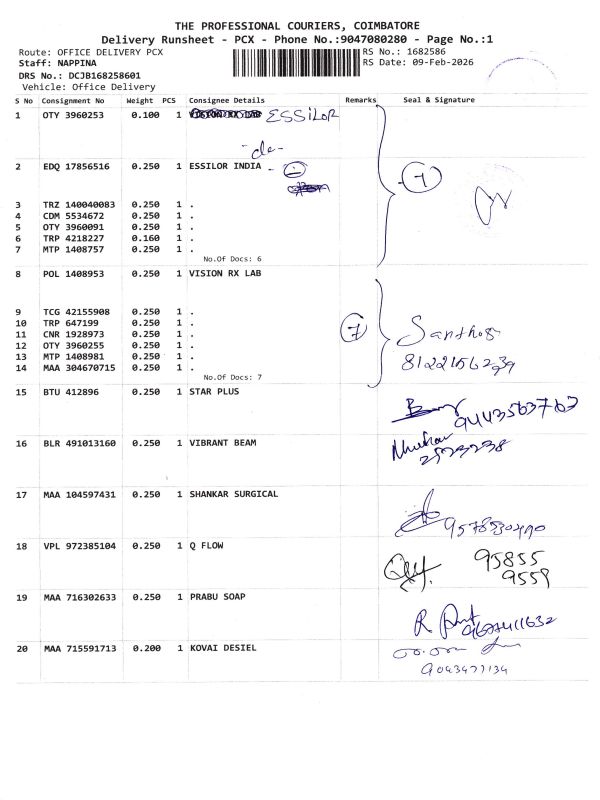 THE PROFESSIONAL COURIERS, COIMBATORE
Delivery Runsheet - PCX - Phone No.:9047080280 - Page No.:1
Route: OFFICE DELIVERY PCX
RS No.: 1682586
Staff: NAPPINA
RS Date: 09-Feb-2026
DRS No.: DCJB168258601
Vehicle: Office Delivery
S No Consignment No Weight PCS Consignee Details Remarks Seal & Signature
1 OTY 3960253 0.100 1 VISION RX LAB ESSILOR
-do-
2 EDQ 17856516 0.250 1 ESSILOR INDIA -
7
3 TRZ 140040083 0.250 1 .
4 CDM 5534672 0.250 1 .
5 OTY 3960091 0.250 1 .
6 TRP 4218227 0.160 1 .
7 MTP 1408757 0.250 1 .
No.Of Docs: 6
8 POL 1408953 0.250 1 VISION RX LAB
9 TCG 42155908 0.250 1 .
10 TRP 647199 0.250 1 .
11 CNR 1928973 0.250 1 .
7 Santhos
12 OTY 3960255 0.250 1 .
13 MTP 1408981 0.250 1 .
14 MAA 304670715 0.250 1 .
No.Of Docs: 7
15 BTU 412896 0.250 1 STAR PLUS
9443563763
16 BLR 491013160 0.250 1 VIBRANT BEAM
17 MAA 104597431 0.250 1 SHANKAR SURGICAL
18 VPL 972385104 0.250 1 Q FLOW
95855
9559
19 MAA 716302633 0.250 1 PRABU SOAP
20 MAA 715591713 0.200 1 KOVAI DESIEL
9043477134